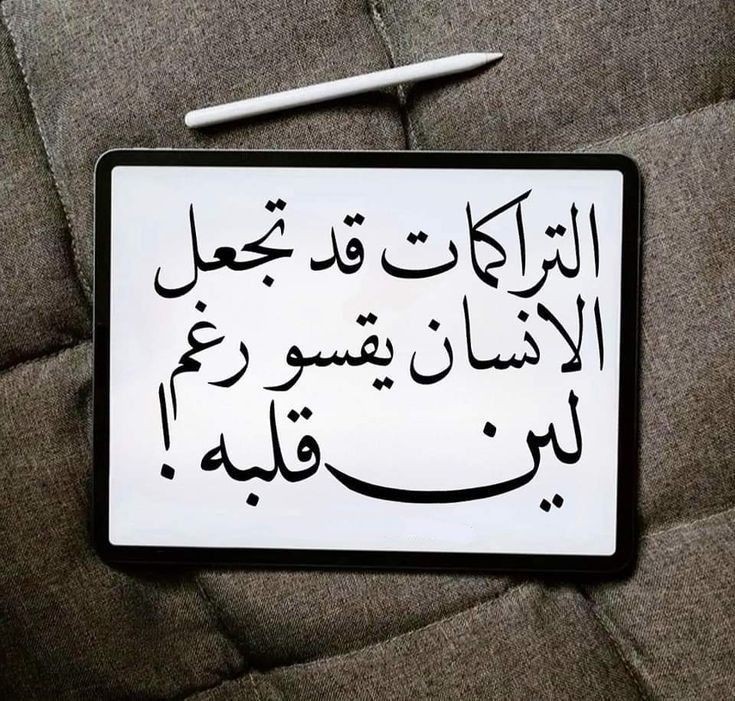 التراكمات قد تجعل
الانسان يقسو رغم
لين قلبه!